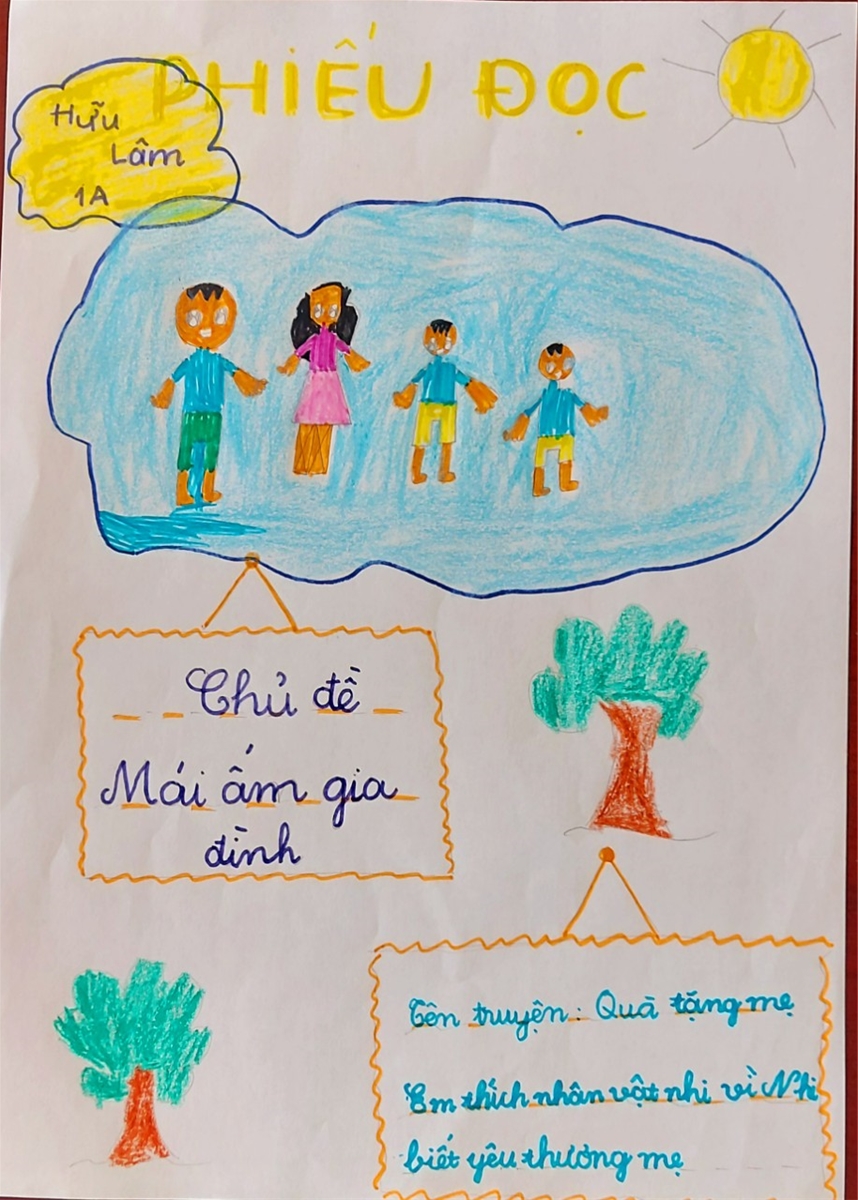 PHIẾU ĐỌC
Hữu
Lâm
1A
Chủ đề
Mái ấm gia
đình
Tên truyện: Quà tặng mẹ
Em thích nhân vật nhi vì Nhi
biết yêu thương mẹ